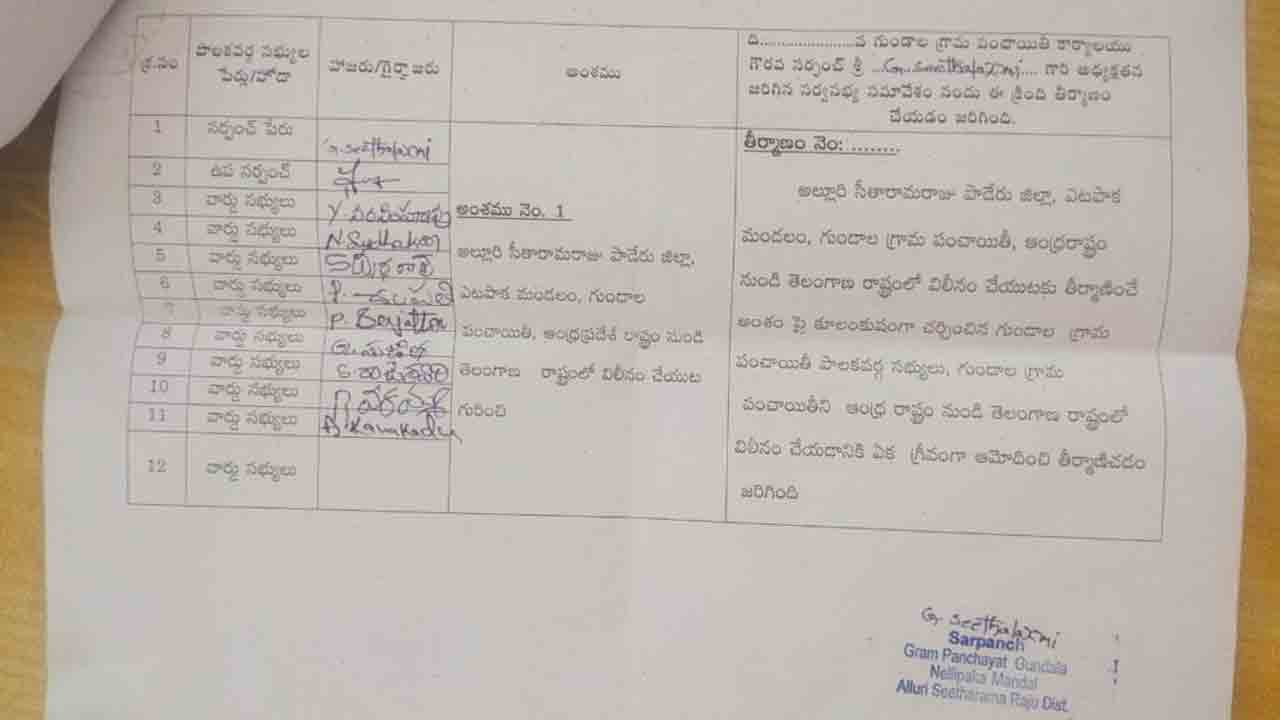 క్ర.సం
పాలకవర్గ సభ్యుల
పేర్లు/హోదా
హాజరు/గైర్హాజరు
అంశము
ది......................వ గుండాల గ్రామ పంచాయితీ కార్యాలయ
గౌరవ సర్పంచ్ శ్రీ ...G. seethalaxmi.... గారి అధ్యక్షతన
జరిగిన సర్వసభ్య సమావేశం నందు ఈ క్రింది తీర్మాణం
చేయడం జరిగింది.
1 సర్పంచ్ పేరు G. seethalaxmi
2 ఉప సర్పంచ్
3 వార్డు సభ్యులు
4 వార్డు సభ్యులు
5 వార్డు సభ్యులు
6 వార్డు సభ్యులు
7 వార్డు సభ్యులు
8 వార్డు సభ్యులు
9 వార్డు సభ్యులు
10 వార్డు సభ్యులు
11 వార్డు సభ్యులు
12 వార్డు సభ్యులు
అంశము నెం. 1
అల్లూరి సీతారామరాజు పాడేరు జిల్లా,
ఎటపాక మండలం, గుండాల
పంచాయితీ, ఆంధ్రప్రదేశ్ రాష్ట్రం నుండి
తెలంగాణ రాష్ట్రంలో విలీనం చేయుట
గురించి
తీర్మాణం నెం: ........
అల్లూరి సీతారామరాజు పాడేరు జిల్లా, ఎటపాక
మండలం, గుండాల గ్రామ పంచాయితీ, ఆంధ్రరాష్ట్రం
నుండి తెలంగాణ రాష్ట్రంలో విలీనం చేయుటకు తీర్మాణించే
అంశం పై కూలంకుషంగా చర్చించిన గుండాల గ్రామ
పంచాయితీ పాలకవర్గ సభ్యులు, గుండాల గ్రామ
పంచాయితీని ఆంధ్ర రాష్ట్రం నుండి తెలంగాణ రాష్ట్రంలో
విలీనం చేయడానికి ఏక గ్రీవంగా ఆమోదించి తీర్మాణిచడం
జరిగింది
G. seethalaxmi
Sarpanch
Gram Panchayat Gundala
Nellipaka Mandal
Alluri Seetharama Raju Dist.